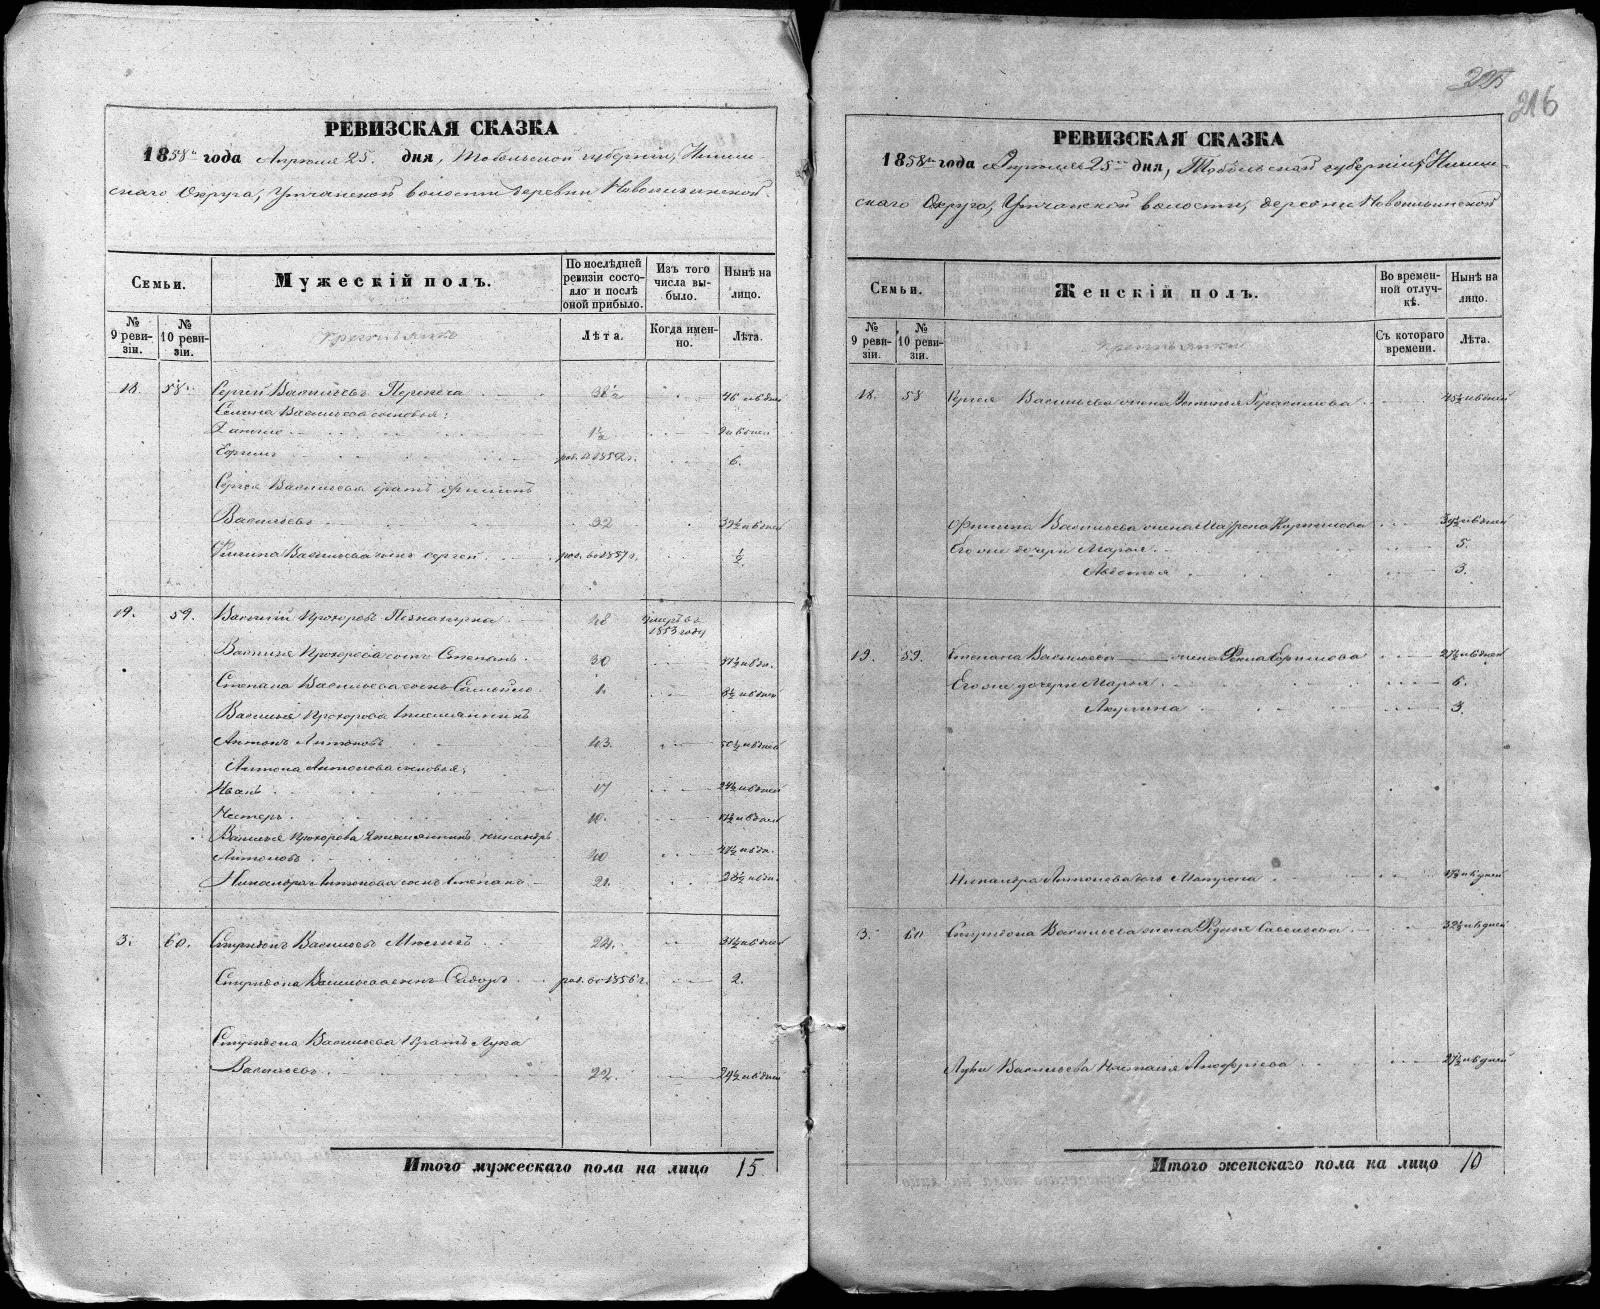 РЕВИЗСКАЯ СКАЗКА
1858го года Апреля 25. дня, Тобольской губернии, Ишим-
скаго Округа, Утчанской волости деревни Новоильинской
Семьи.
Мужескій полъ.
По послѣдней ревизіи состо-яло и послѣ оной прибыло.
Изъ того числа вы-было.
Нынѣ на лицо.
№ 9 реви-зіи.
№ 10 реви-зіи.
Лѣта.
Когда имен-но.
Лѣта.
18. 58. Сергей Васильевъ 38½ 46 и 8 дней
Васильева сыновья:
1½ 9 и 8 дней
Ефимъ род. въ 1852 г. 6.
Сергея Васильева братъ Филипъ
Васильевъ 32 39½ и 8 дней
Филипа Васильева сынъ Сергей род. въ 1857 г. ½
19. 59. Василий Прохоровъ 48 умеръ въ 1853 году
Василья Прохорова сынъ Степанъ 30 37½ и 8 дн.
Степана Васильева сынъ Самойло 1. 8½ и 8 дней
Василья Прохорова племянникъ
Антонъ Антоновъ 43. 50½ и 8 дней
Антона Антонова сыновья:
Иванъ 17 24½ и 8 дней
Нестеръ 10. 17½ и 8 дней
Василья Прохорова 2 племянникъ Никандръ
Антоновъ 40 47½ и 8 дн.
Никандра Антонова сынъ Степанъ 21. 28½ и 8 дн.
3. 60. Спиридонъ Васильевъ 24. 31½ и 8 дней
Спиридона Васильева сынъ Сидоръ род. въ 1856 г. 2.
Спиридона Васильева братъ Лука
Васильевъ 22. 29½ и 8 дней
Итого мужескаго пола на лицо 15
216
РЕВИЗСКАЯ СКАЗКА
1858го года Апреля 25го дня, Тобольской губерніи, Ишим-
скаго Округа, Утчанской волости, деревни Новоильинской
Семьи.
Женскій полъ.
Во времен-ной отлуч-кѣ.
Нынѣ на лицо.
№ 9 реви-зіи.
№ 10 реви-зіи.
Съ котораго времени.
Лѣта.
18. 58 Сергея Васильева жена Устинья Герасимова 45½ и 8 дней
Филипа Васильева жена Мавра 39½ и 8 дней
Его же дочери Марья 5.
3.
19. 59. Степана Васильева жена Фекла Ефимова 27½ и 8 дней
Его же дочери Марья 6.
Акулина 3.
Никандра Антонова дочь Матрена 17½ и 8 дней
3. 60 Спиридона Васильева жена Савельева 32½ и 8 дней
Луки Васильева 27½ и 8 дней
Итого женскаго пола на лицо 10